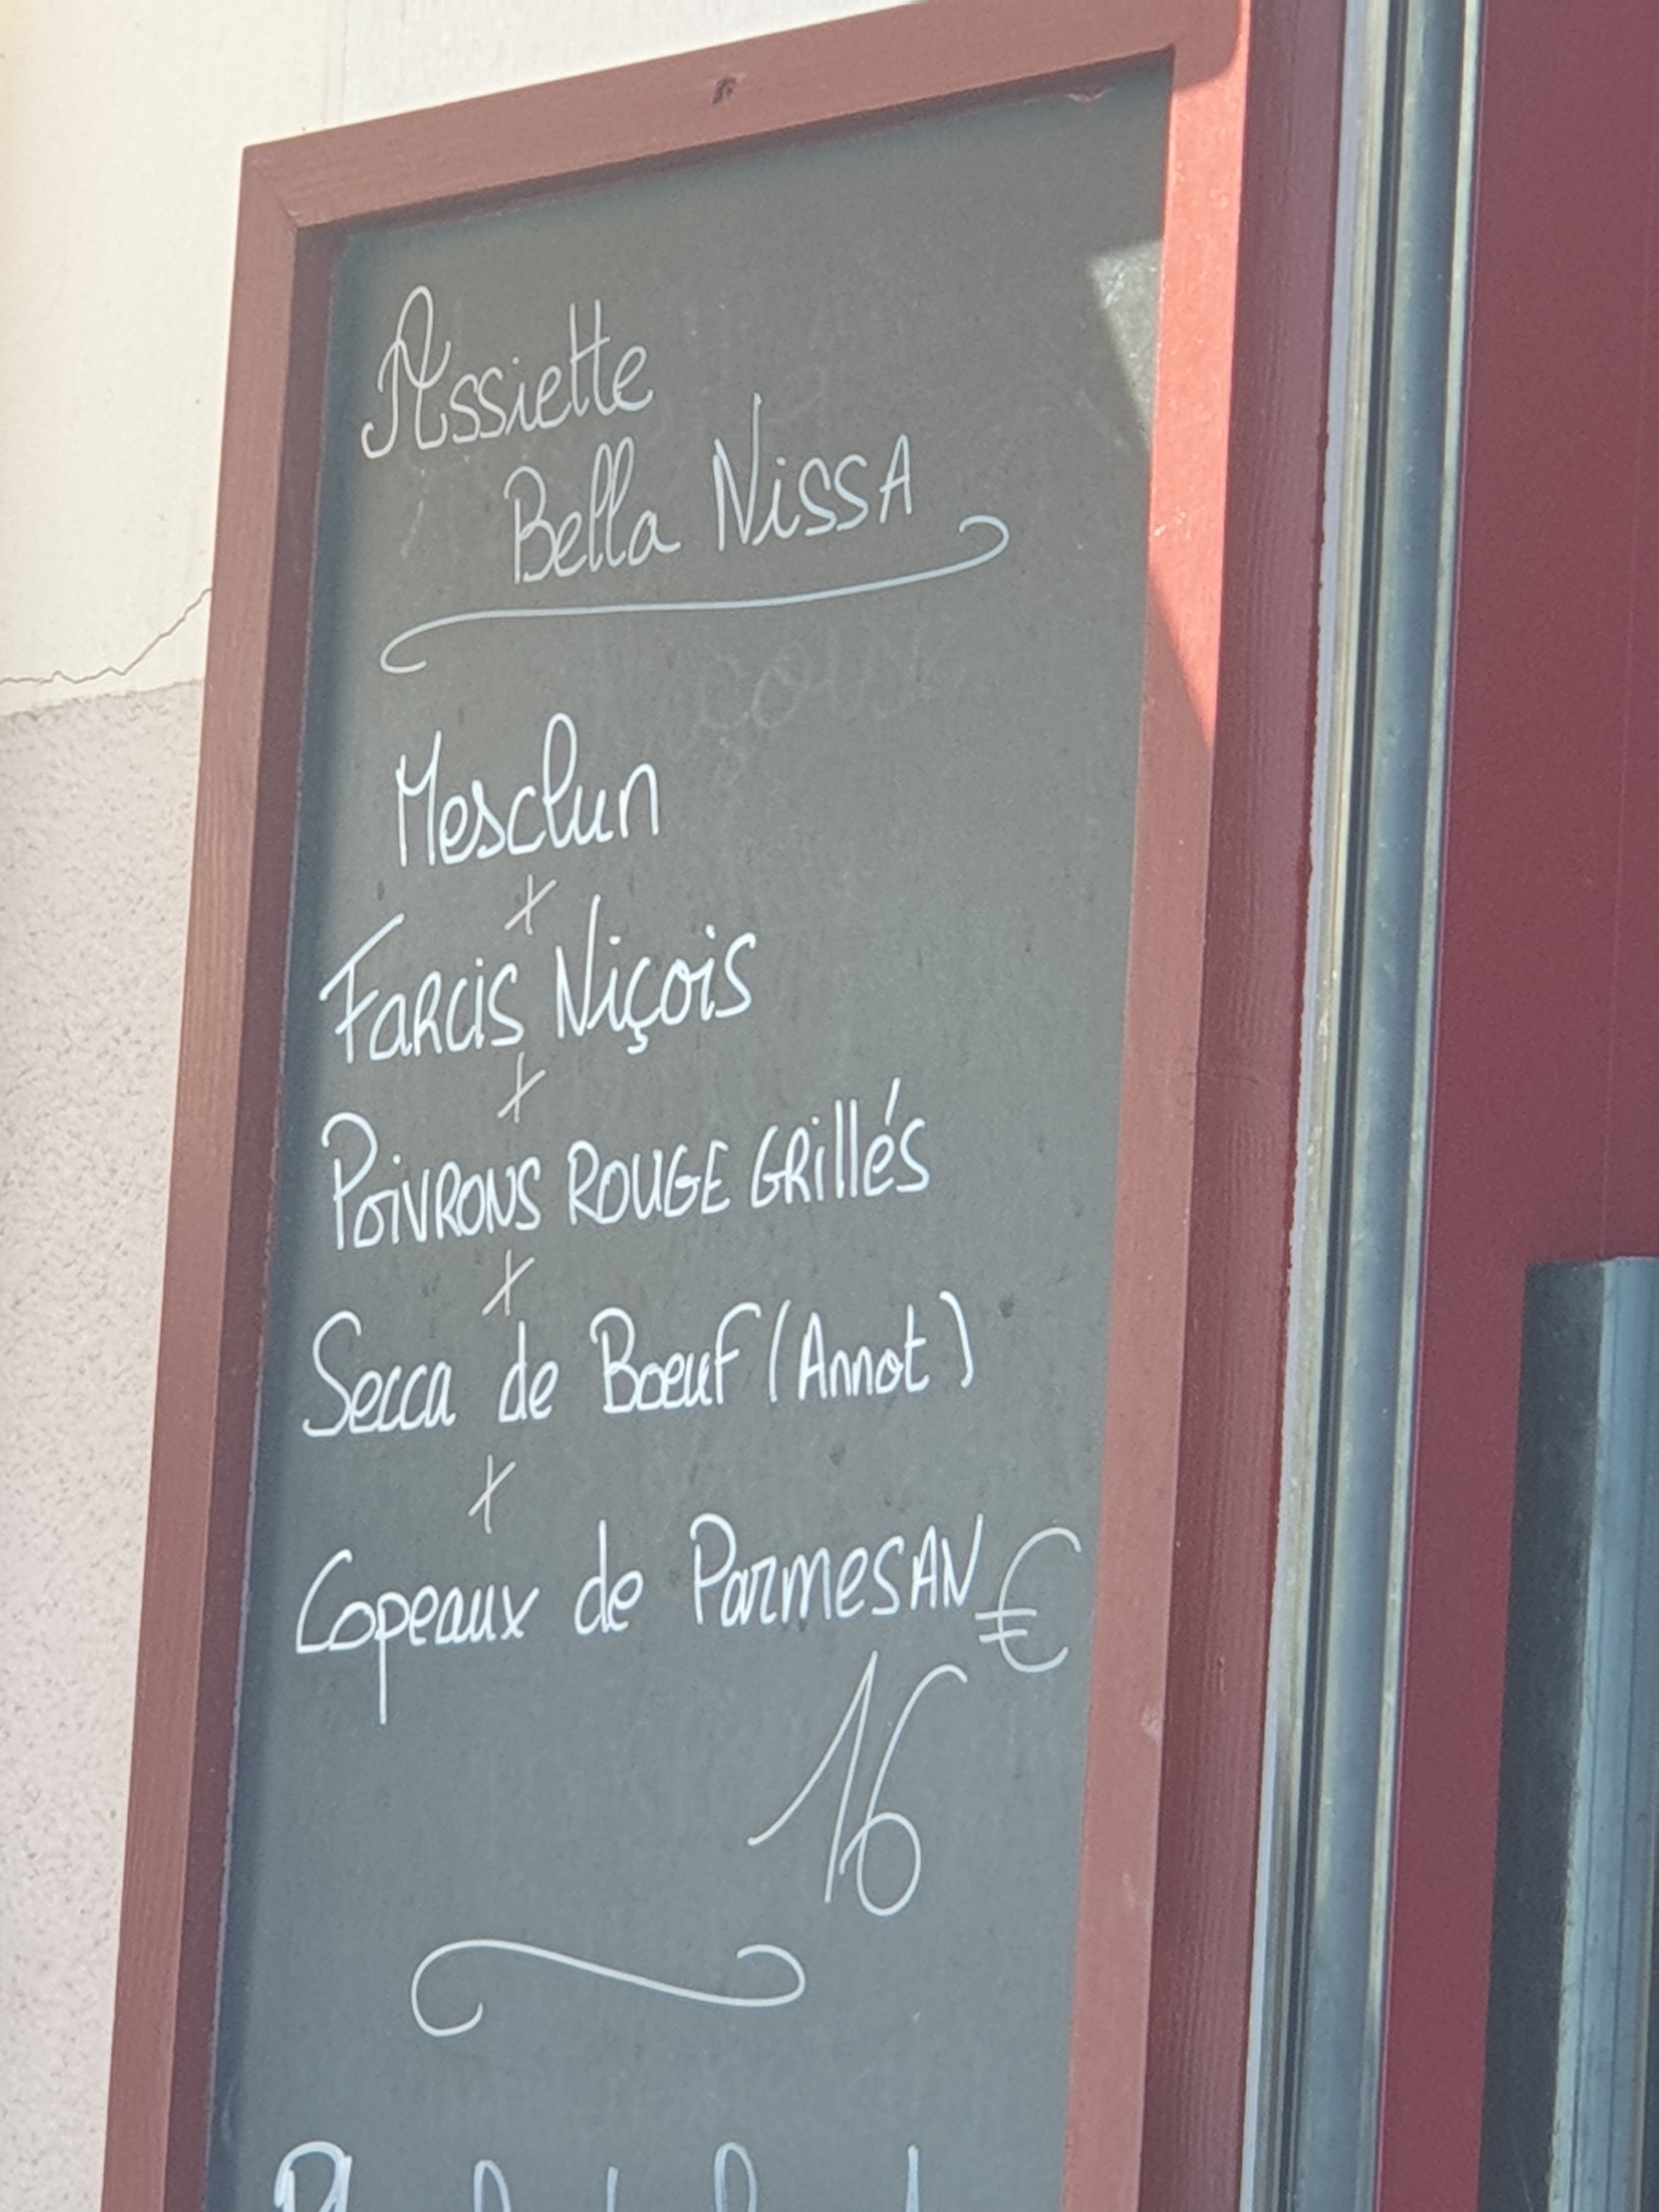 Assiette
Bella Nissa
Mesclun
+
Farcis Niçois
+
Poivrons rouge grillés
+
Secca de Boeuf (Annot)
+
Copeaux de Parmesan
16 €